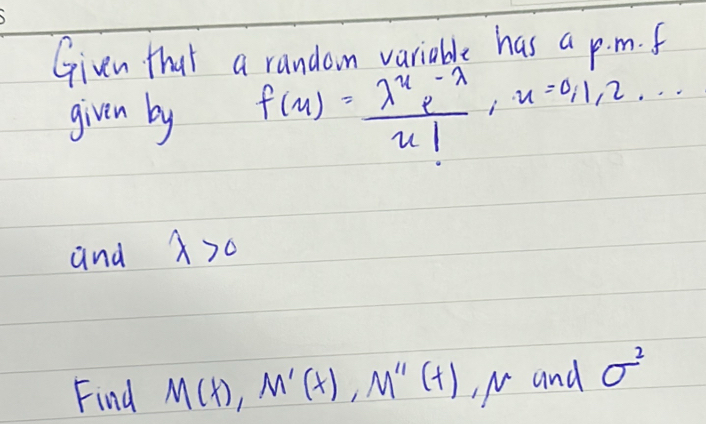 s
Given that a random variable has a p.m.f
given by f(x) = λ^x e^-λ / x! , x = 0,1,2 ...
and λ >0
Find M(t), M'(t), M''(t), μ and σ²